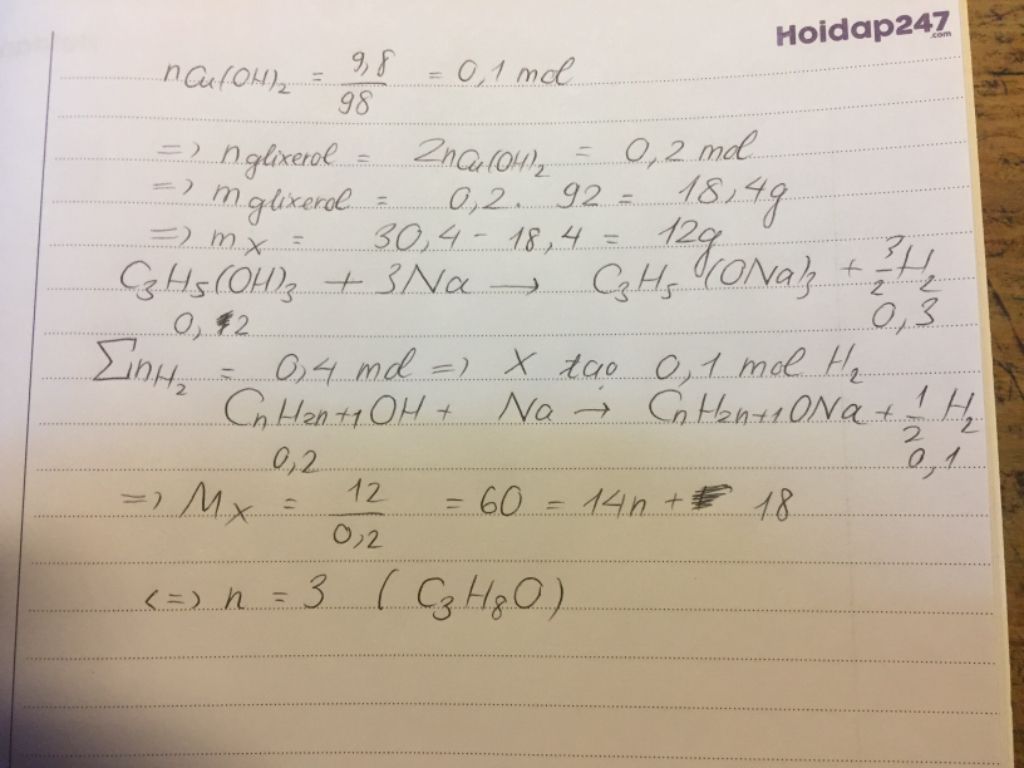 Hoidap247
.com
nCu(OH)₂ = 9,8/98 = 0,1 mol
=> nglixerol = 2nCu(OH)₂ = 0,2 mol
=> mglixerol = 0,2. 92 = 18,4g
=> mX = 30,4 - 18,4 = 12g
C₃H₅(OH)₃ + 3Na → C₃H₅(ONa)₃ + 3/2H₂
0,2 0,3
∑nH₂ = 0,4 mol => X tạo 0,1 mol H₂
CnH2n+1OH + Na → CnH2n+1ONa + 1/2 H₂
0,2 0,1
=> MX = 12/0,2 = 60 = 14n + 18
<=> n = 3 (C₃H₈O)